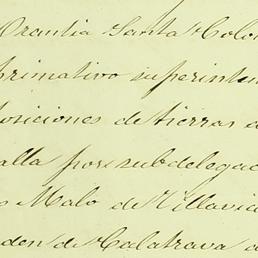 Orantia Santa Colo
primativo superinten
posiciones de tierras a
alla por subdelegac
o Malo de Villavic
den de Calatrava a